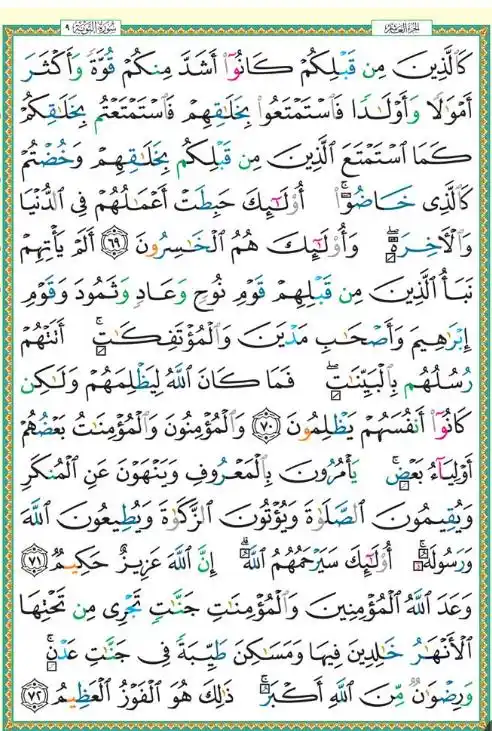 سُورَةُ التَّوْبَةِ ٩
الجزء العاشر
كَالَّذِينَ مِن قَبْلِكُمْ كَانُوٓا۟ أَشَدَّ مِنكُمْ قُوَّةً وَأَكْثَرَ
أَمْوَٰلًا وَأَوْلَٰدًا فَاسْتَمْتَعُوا۟ بِخَلَٰقِهِمْ فَاسْتَمْتَعْتُم بِخَلَٰقِكُمْ
كَمَا اسْتَمْتَعَ الَّذِينَ مِن قَبْلِكُم بِخَلَٰقِهِمْ وَخُضْتُمْ
كَالَّذِى خَاضُوٓا۟ ۚ أُو۟لَٰٓئِكَ حَبِطَتْ أَعْمَٰلُهُمْ فِى الدُّنْيَا
وَالْءَاخِرَةِ ۖ وَأُو۟لَٰٓئِكَ هُمُ الْخَٰسِرُونَ ٦٩ أَلَمْ يَأْتِهِمْ
نَبَأُ الَّذِينَ مِن قَبْلِهِمْ قَوْمِ نُوحٍ وَعَادٍ وَثَمُودَ وَقَوْمِ
إِبْرَٰهِيمَ وَأَصْحَٰبِ مَدْيَنَ وَالْمُؤْتَفِكَٰتِ ۚ أَتَتْهُمْ
رُسُلُهُم بِالْبَيِّنَٰتِ ۖ فَمَا كَانَ اللَّهُ لِيَظْلِمَهُمْ وَلَٰكِن
كَانُوٓا۟ أَنفُسَهُمْ يَظْلِمُونَ ٧٠ وَالْمُؤْمِنُونَ وَالْمُؤْمِنَٰتُ بَعْضُهُمْ
أَوْلِيَآءُ بَعْضٍ ۚ يَأْمُرُونَ بِالْمَعْرُوفِ وَيَنْهَوْنَ عَنِ الْمُنكَرِ
وَيُقِيمُونَ الصَّلَوٰةَ وَيُؤْتُونَ الزَّكَوٰةَ وَيُطِيعُونَ اللَّهَ
وَرَسُولَهُۥٓ ۚ أُو۟لَٰٓئِكَ سَيَرْحَمُهُمُ اللَّهُ ۗ إِنَّ اللَّهَ عَزِيزٌ حَكِيمٌ ٧١
وَعَدَ اللَّهُ الْمُؤْمِنِينَ وَالْمُؤْمِنَٰتِ جَنَّٰتٍ تَجْرِى مِن تَحْتِهَا
الْأَنْهَٰرُ خَٰلِدِينَ فِيهَا وَمَسَٰكِنَ طَيِّبَةً فِى جَنَّٰتِ عَدْنٍ ۚ
وَرِضْوَٰنٌ مِّنَ اللَّهِ أَكْبَرُ ۚ ذَٰلِكَ هُوَ الْفَوْزُ الْعَظِيمُ ٧٢